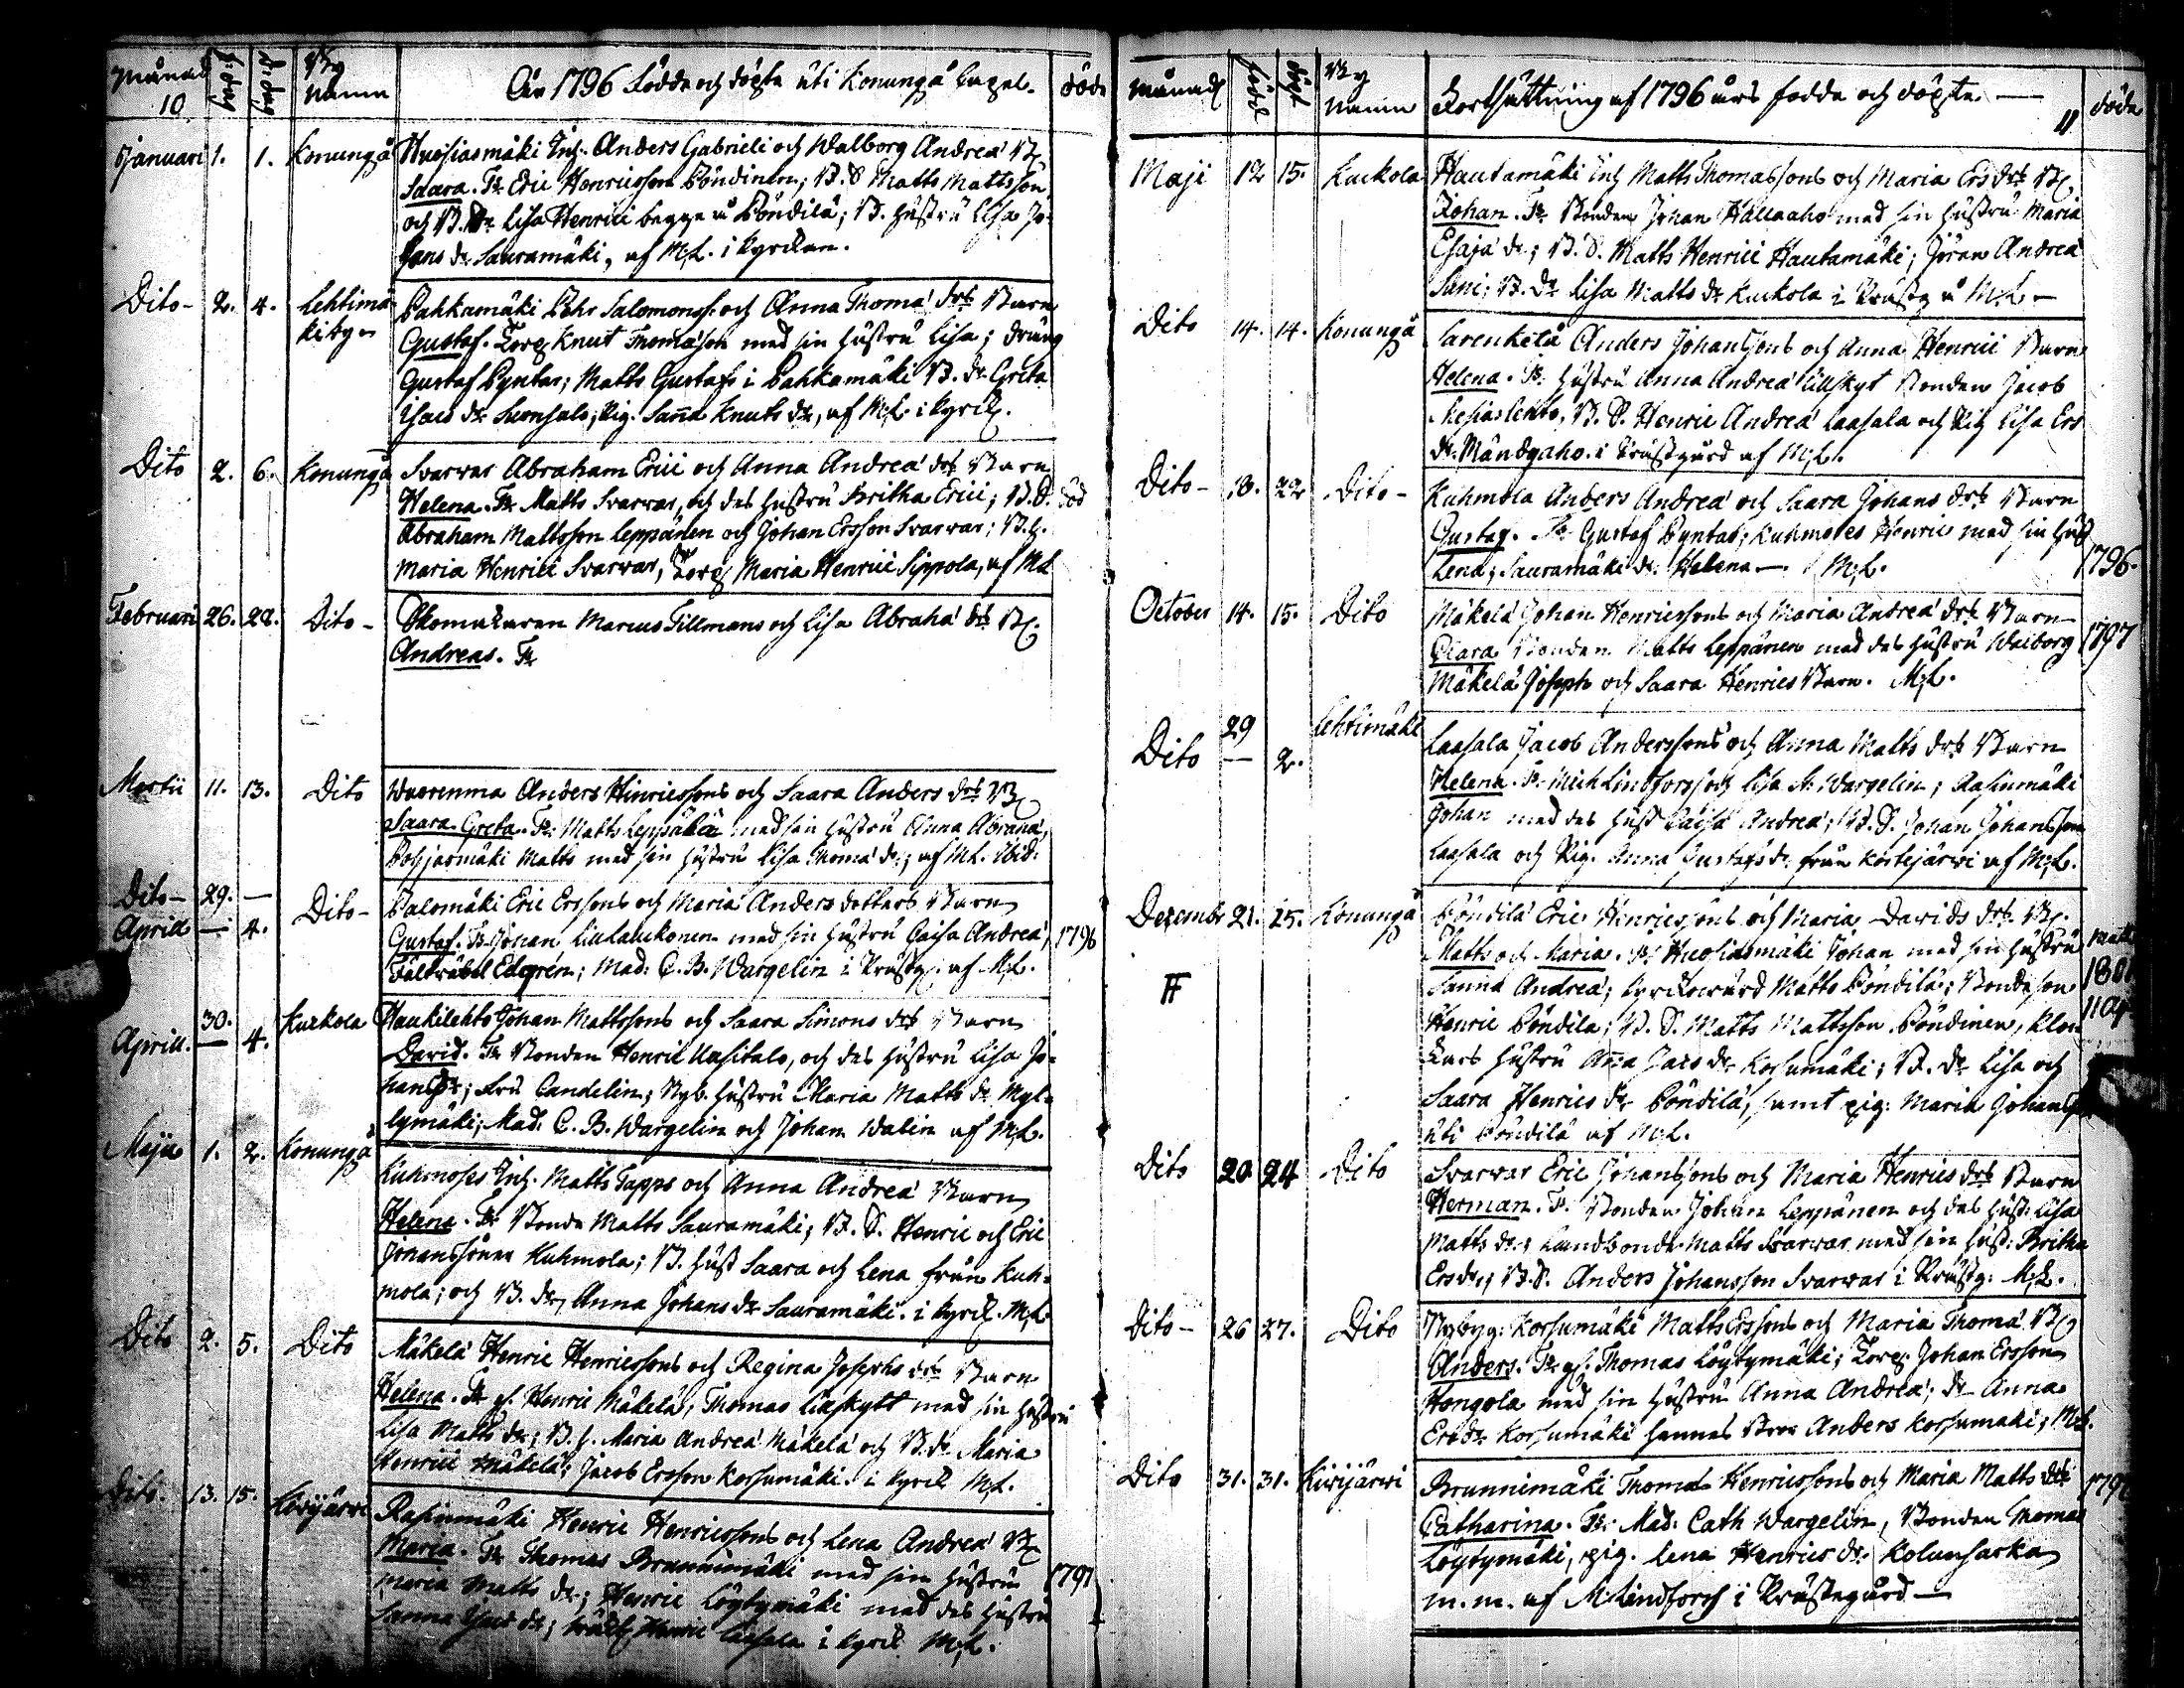 Månad 10. f: dag d: dag By Namn År 1796 Födda och döpta uti Konungå Capel. döde
Januari 1. 1. Konungå Huosiasmäki Inh. Anders Gabrieli och Walborg Andreæ B:
Saara. F: Eric Henricsson Pöndinen; B. S. Matts Mattsson
och B. dr Lisa Henrici begge å Pöndilä; B. hustru Lisa Jo-
hans dr Sauramäki, af M:L. i Kyrckan.
Dito - 2. 4. Lehtimäki by - Pahkamäki Pehr Salomonss. och Anna Thomæ drs Barn
Gustaf. F: Torp. Knut Thomasson med sin hustru Lisa; dräng
Gustaf Pyntar; Matts Gustafs i Pahkamäki B. dr Greta
Isacs dr Suonsalo; Pig. Sanna Knuts dr, af M:L i kyrck.
Dito 2. 6. Konungå Svarvar Abraham Erici och Anna Andreæ drs Barn
Helena. F: Matts Svarvar, och des hustru Britha Erici; B. S. död
Abraham Mattsson Leppänen och Johan Ersson Svarvar; B. h.
Maria Henrici Svarvar, Torp. Maria Henrici Sippola, af M:L
Februari 26. 28. Dito - Skomakaren Marcus Tillmans och Lisa Abrahæ drs B:
Andreas. F:
Martii 11. 13. Dito Wuorenma Anders Hinricssons och Saara Anders drs B:
Saara Greta. F: Matts Leppälä med sin hustru Anna Abrahæ,
Pohjasmäki Matts med sin hustru Lisa Thomæ dr; af M:L. Ibid:
Dito - 29. -
Aprill - 4. Dito - Palomäki Eric Erssons och Maria Anders dotters Barn
Gustaf. F: Johan Lillalukonen med sin hustru Caisa Andreæ, 1796
Fältväbel Edgren; Mad: C. B. Wargelin i Prästg. af M:L.
30.
Aprill. - 4. Kuckola Haukilehto Johan Mattssons och Saara Simons drs Barn
David. F: Bonden Henric Uusitalo, och des hustru Lisa Jo-
hans dr; Fru Candelin; Nyb. hustru Maria Matts dr Myl-
lymäki; Mad: C. B. Wargelin och Johan Walin af M:L.
Maji 1. 2. Konungå Kuhmoses Inh. Matts Tapps och Anna Andreæ Barn
Helena. F: Bonde Matts Sauramäki; B. S. Henric och Eric
Johanssöner Kuhmola; B. hust Saara och Lena från Kuh-
mola; och B. dr, Anna Johans dr Sauramäki. i kyrck. M:L
Dito 2. 5. Dito Mäkelä Henric Henricssons och Regina Josephs drs Barn
Helena. F: gl. Henric Mäkelä, Thomas Lillskytt med sin hustru
Lisa Matts dr; B. h. Maria Andreæ Mäkelä och B. dr Maria
Henrici Mäkelä; Jacob Ersson Korsumäki. i kyrck M:L.
Dito. 13. 15. Kivijärvi Rasinmäki Henric Henricssons och Lena Andreæ B:
Maria. F: Thomas Brunnimäki med sin hustru 1797
Maria Matts dr; Henric Löytymäki med des hustru
Sanna Isacs dr; Henric Laasala i kyrck M:L.
Månad född döpt By Namn Fortsättning af 1796 års födda och döpta - 11 döda
Maji 12 15. Kuckola Hautamäki Inh Matts Thomassons och Maria Ers drs B:
Johan. F: Bonden Johan Hallaaho med sin hustru Maria
Esajæ dr; B. S. Matts Henrici Hautamäki; Jöran Andreæ
Sani; B. dr Lisa Matts dr Kuckola i Prästg å M:L -
Dito 14. 14. Konungå Sarenketå Anders Johanssons och Anna Henrici Barn
Helena. F: hustru Anna Andreæ Lillskyt Bonden Jacob
Mesiaslehto, B. S. Henric Andreæ Laasala och Pig Lisa Ers
dr. Mändyaho. i Prästgård af M:L.
Dito - 18. 22 Dito - Kuhmola Anders Andreæ och Saara Johans drs Barn
Gustaf. F: Gustaf Pyntar; Kuhmoses Henric med sin hust
Lena; Sauramäki dr. Helena -. M:L. 1796.
October 14. 15. Dito Mäkelä Johan Henricssons och Maria Andreæ drs Barn
Clara Bonden Matts Leppänen med des hustru Walborg 1797
Mäkelä Joseph och Saara Henrics Barn. M:L.
29 Lehtimäki
Dito - 2. Laasala Jacob Anderssons och Anna Matts drs Barn
Helena. F: Mich Lindfors och Lisa St. Wargelin; Rasinmäki
Johan med des hust Caisa Andreæ; B. S. Johan Johansson
Laasala och Pig. Anna Gustafs dr från Kortejärvi af M:L.
December 21. 25. Konungå Pöndilä Eric Henricssons och Maria Davids drs B:
Matts och Maria. F: Huosiasmäki Johan med sin hustru Matts
Sanna Andreæ; kyrckovärd Matts Pöndilä; Bondeson 180
Henric Pöndilä; B. S. Matts Mattsson Pöndinen, Kloc-
kars hustru Anna Isacs dr Korsumäki; B. dr Lisa och
Saara Henrics dr Pöndilä, samt pig: Maria Johans dr
uti Pöndilä af M:L.
Dito 20 24 Dito Svarvar Eric Johanssons och Maria Henrics drs Barn
Herman. F: Bonden Johan Leppänen och des hust: Lisa
Matts dr; Landbonde Matts Svarvar med sin hust: Britha
Ers dr; B. S. Anders Johansson Svarvar i Prästg: M:L.
Dito - 26 27. Dito Nybyg: Korsumäki Matts Erssons och Maria Thomæ B:
Anders. F: gl. Thomas Löytymäki; Torp. Johan Ersson
Hongola med sin hustru Anna Andreæ; dr Anna
Ers dr Korsumäki hennes Bror Anders Korsumäki; M:L.
Dito 31. 31. Kivijärvi Brunnimäki Thomas Henricssons och Maria Matts drs 179
Catharina. F: Mad: Cath Wargelin, Bonden Thomas
Löytymäki, pig. Lena Henrics dr Kolunsarka
m. m. af M:Lindfors i Prästegård -